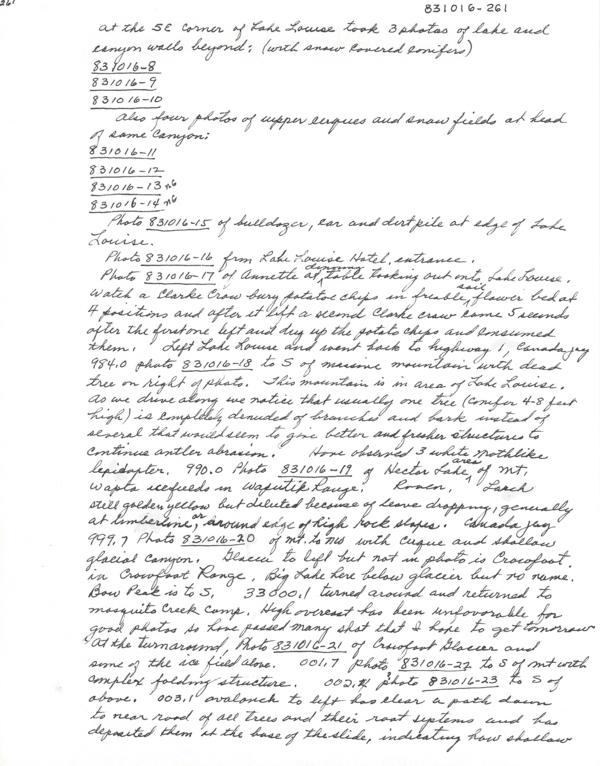 261
831016-261
at the SE corner of Lake Louise took 3 photos of lake and
canyon walls beyond; (with snow covered conifers)
831016-8
831016-9
831016-10
Also four photos of upper cirques and snow fields at head
of same canyon;
831016-11
831016-12
831016-13 n6
831016-14 n6
Photo 831016-15 of bulldozer, car and dirt pile at edge of Lake
Louise.
Photo 831016-16 from Lake Louise Hotel, entrance.
Photo 831016-17 of Annette at dining table looking out onto Lake Louise.
Watch a Clarke Crow bury potatoe chips in friable soil, flower bed at
4 positions and after it left a second Clarke crow came 5 seconds
after the first one left and dug up the potato chips and consumed
them. Left Lake Louise and went back to highway 1, Canada jay
984.0 photo 831016-18 to S of massive mountain with dead
tree on right of photo. This mountain is in area of Lake Louise.
As we drive along we notice that usually one tree (conifer 4-8 feet
high) is completely denuded of branches and bark instead of
several that would seem to give better and fresher structures to
continue antler abrasion. Have observed 3 white mothlike
lepidopter. 990.0 Photo 831016-19 of Hector Lake area, of Mt.
Wapta icefields in Waputik Range. Raven, Larch
still golden yellow but diluted because of leave dropping, generally
at timberline, or around edge of high rock slopes. Canada jay
999.7 Photo 831016-20 of mt. to NS with cirque and shallow
glacial canyon. Glacier to left but not in photo is Crowfoot.
in Crowfoot Range, Big Lake here below glacier but no name.
Bow Peak is to S. 33000.1 turned around and returned to
mosquito Creek Camp. High overcast has been unfavorable for
good photos so have passed many shot that I hope to get tomorrow
At the turnaround, Photo 831016-21 of Crowfoot Glacier and
some of the ice field alone. 001.7 photo 831016-22 to S of mt with
complex folding structure. 002.4 photo 831016-23 to S of
above. 003.1 avalanch to left has clear a path down
to near road of all trees and their root systems and has
deposited them at the base of the slide, indicating how shallow